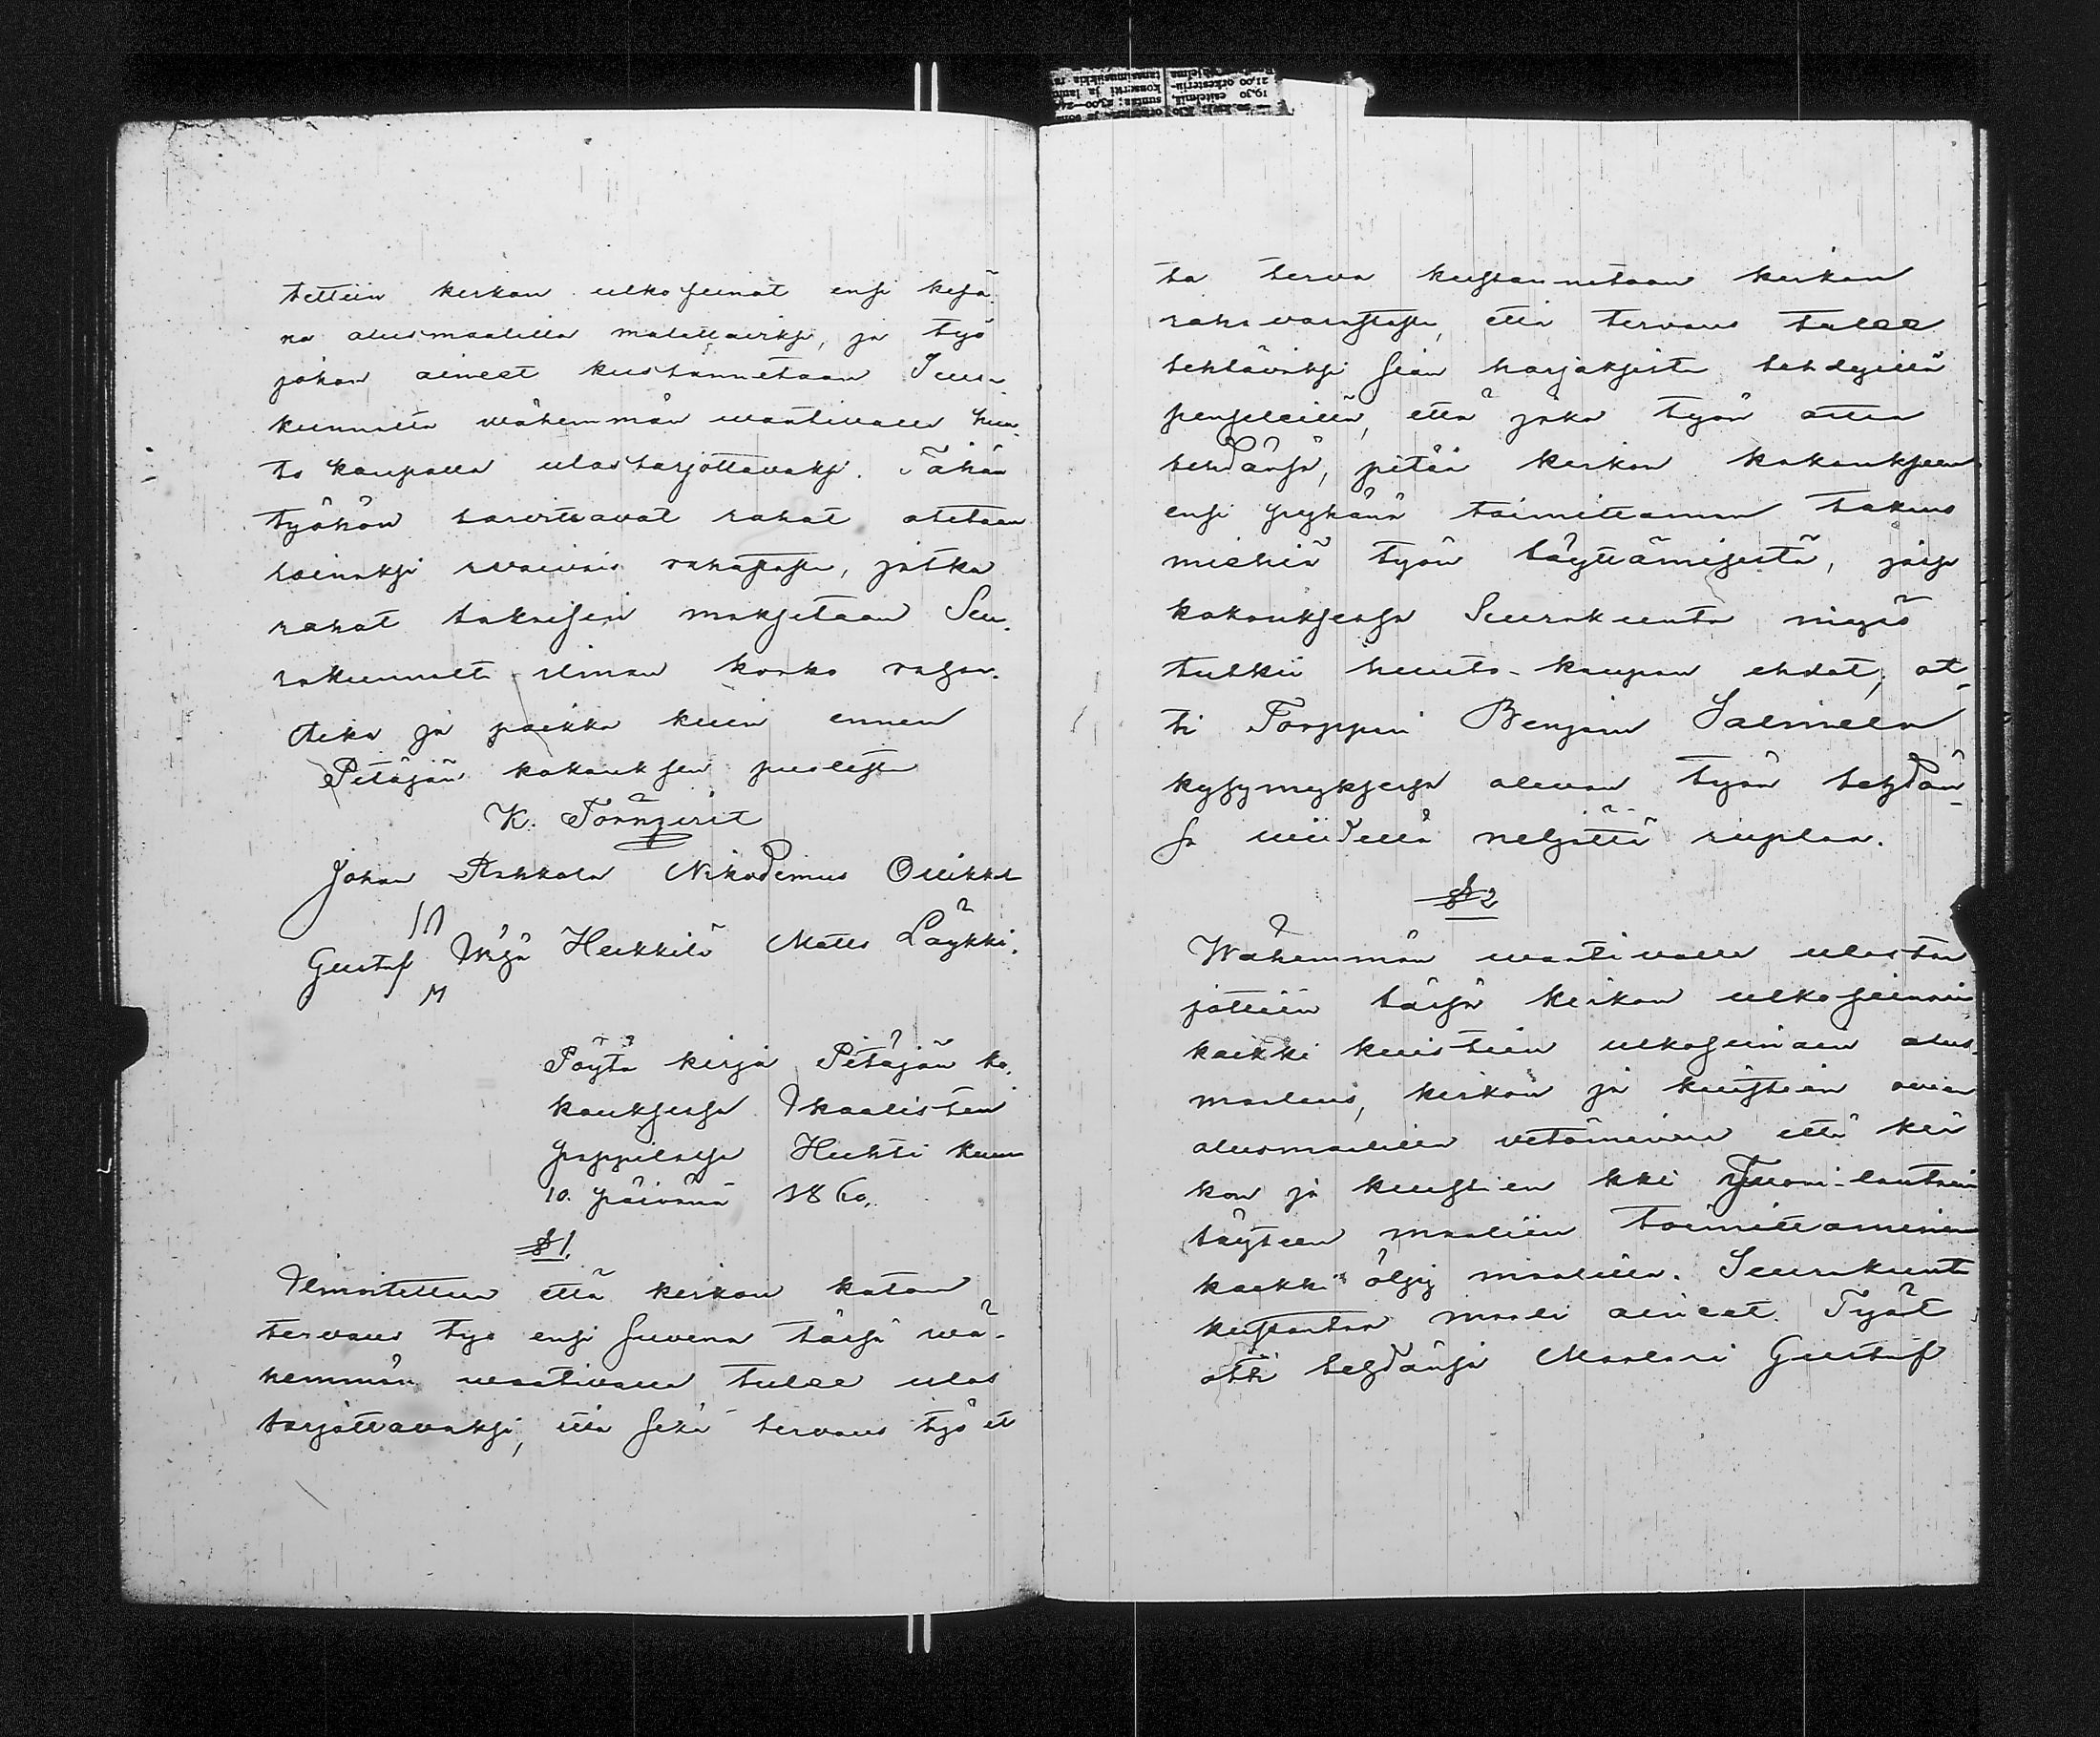 tettiin kirkon ulkoseinät ensi kesä-
nä alusmaalilla malattaviksi, ja työ
johon aineet kustannetaan Seura
kunnalta vähemmän vaativalle huu-
to kaupalla ulos tarjottavaksi. Tähän
työhön tarvittavat rahat otetaan
lainaksi vaivais rahastosta, jotka
rahat takaisin maksetaan Seu-
rakunnalta ilman korko rahan.
Aika ja paikka kuin ennen
Pitäjän kokouksen puolesta
K. Törnqvist
Johan Nikodemus
Gustaf Yrjä Heikkilä Matts Läykki.
Pöytä kirja Pitäjän ko-
kouksessa Ikaalisten
Pappilassa Huhti kuun
10. päivänä 1860.
§ 1.
Ilmoitettiin että kirkon katon
tervaus työ ensi suvena tässä vä-
hemmän vaativalle tulee ulos
tarjottavaksi, että sekä tervaus työ et
tä terva kustannetaan kirkon
raha varastosta, että tervaus tulee
tehtäväksi sian harjaksista tehdyillä
pensleillä, että joka työn ottaa
tehdänsä, pitää kirkon kokoukseen
ensi pyhänä toimittaman takaus
miehiä työn täyttämisestä, jossa
kokouksessa Seurakunta myös
tutkii huuto-kaupan ehdot; ot-
ti Torppari Benjam Salmela
kysymyksessä olevan työn tehdän-
sä viidellä neljättä ruplaa.
§ 2
Wähemmän vaativalle ulostar
jottiin tässä kirkon ulkoseinäin
kaikki kuistein ulkoseinäin alus-
maalaus, kirkon ja kuistien ovien
alusmaalilla vetäminen että kir
kon ja kuistien kki Vuori-lautain
täyteen maaliin toimittaminen
kaikki öljy maalilla. Seurakunta
kustantaa maali aineet. Työt
otti tehdänsä Maalari Gustaf